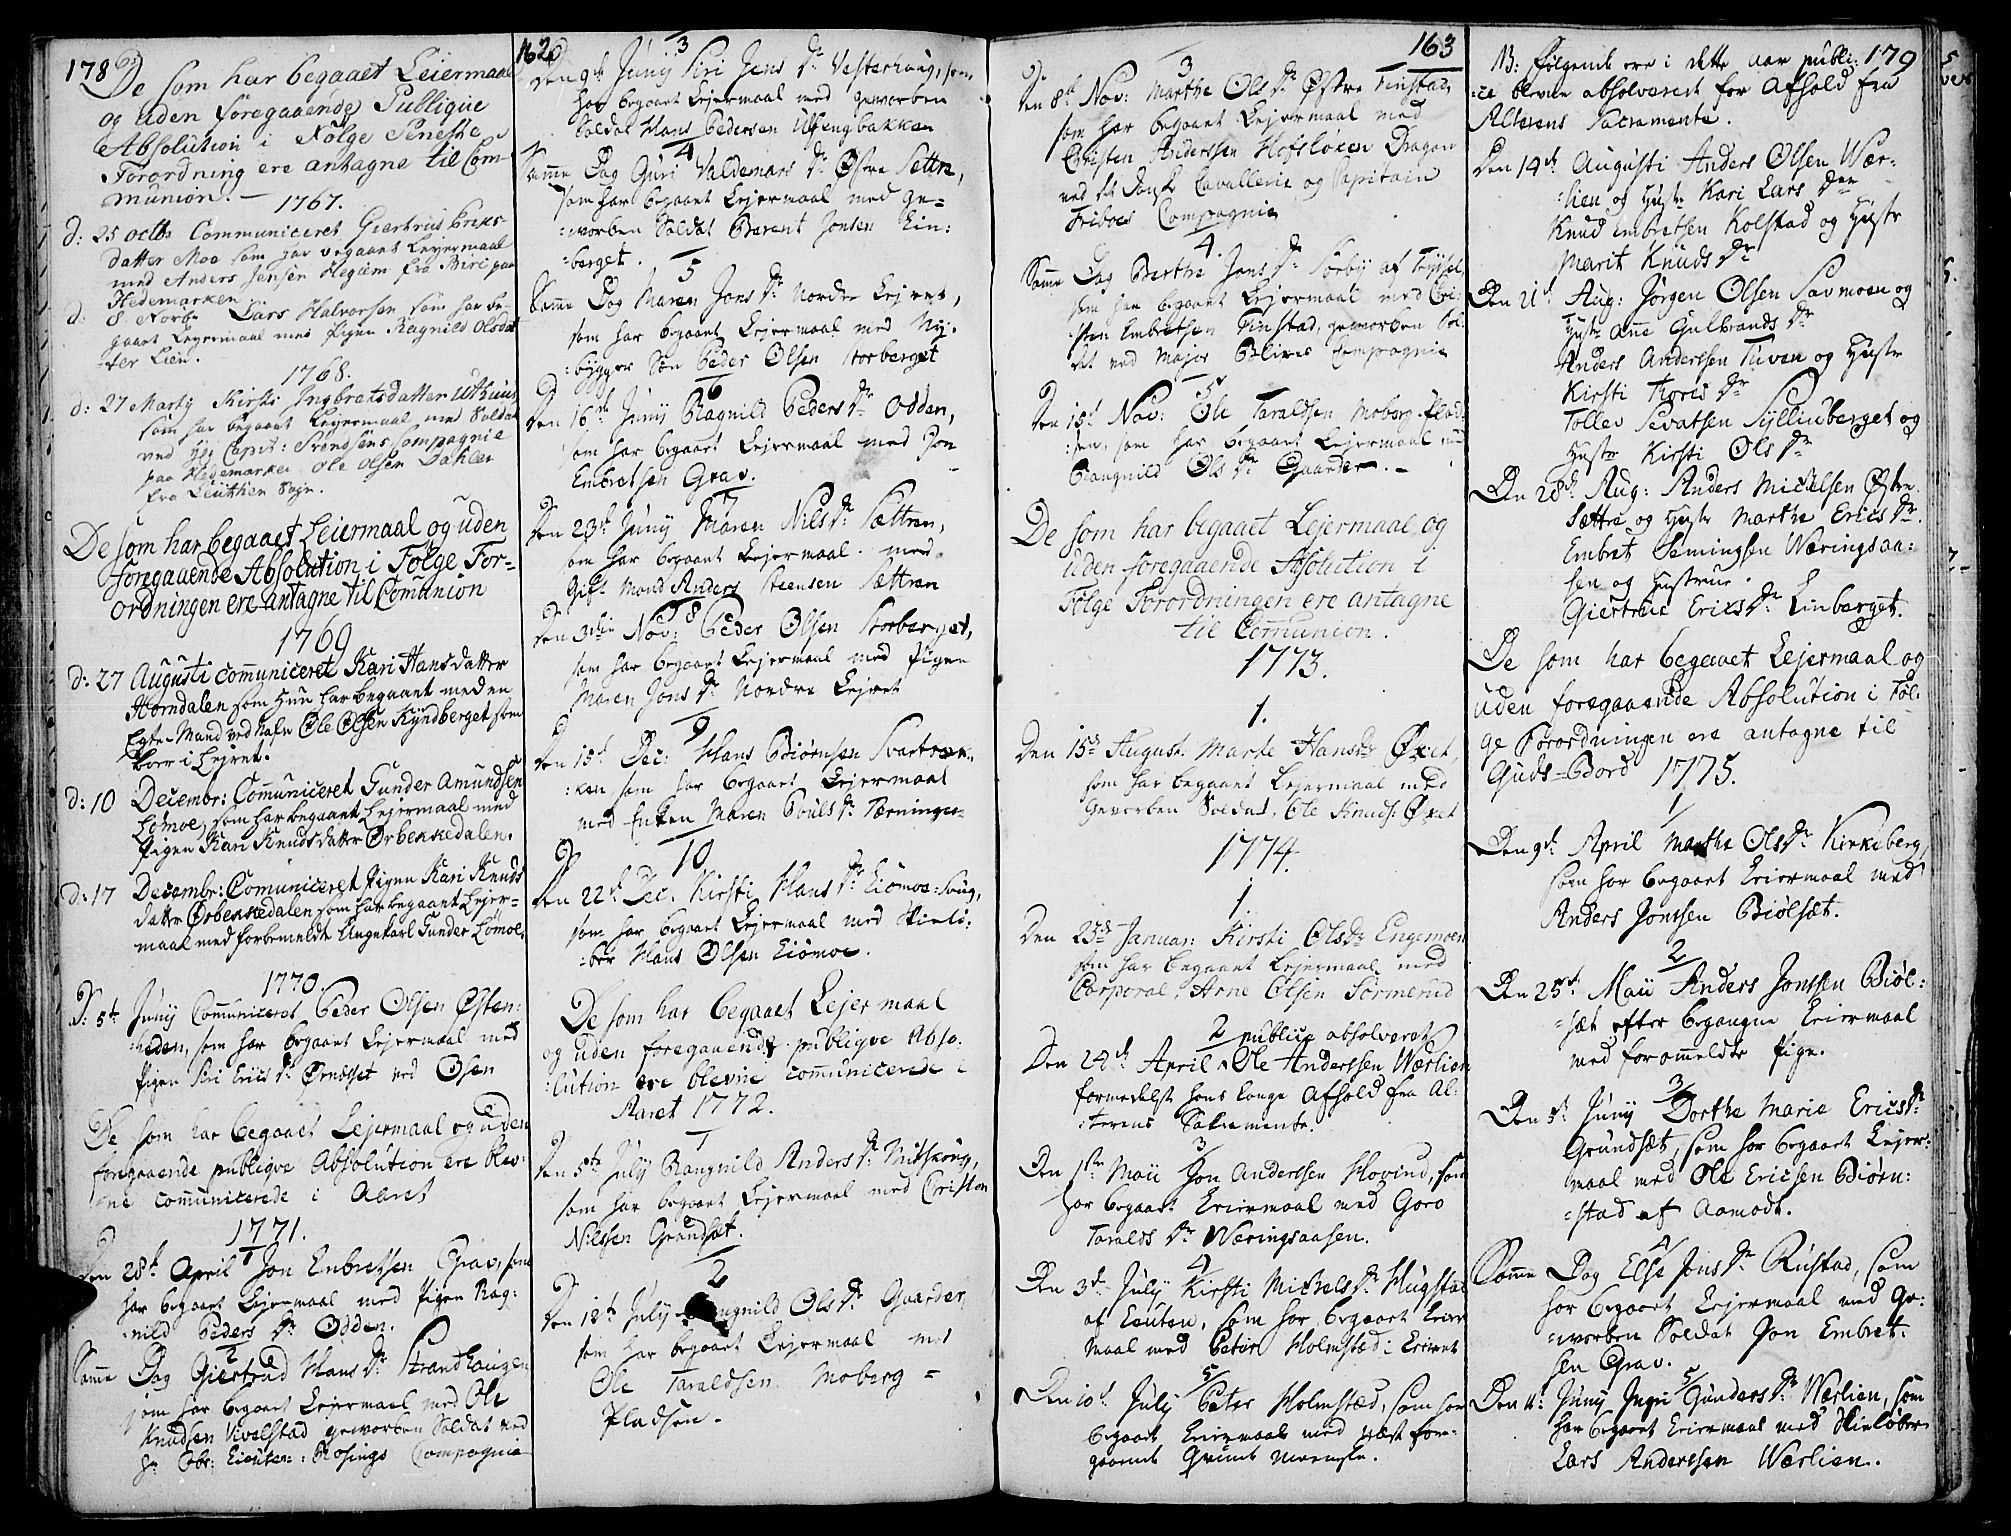 178
De som har begaaet Leiermaal
og uden foregaaende Publique
Absolution i Følge Seneste
Forordning ere antagne til Com-
munion. —
1767.
d: 25 octbr Communiceret Giertrus Erics-
datter Moe som har begaaet Leyermaal
med Anders Jensen Hegum fra Biri paa
Hedemarken
d: 8 Novbr Lars Halvorsen som har be-
gaaet Leyermaal med Pigen Ragnild Olsdat
-ter Lien.
1768.
d: 27 Marty Kirsti Ingbretsdatter Uthuus
som har begaaet Leyermaal med Soldat
ved Capit: Svendsens Compagnie
paa Hedemarken Ole Olsen Dahlen
fra Leuthen Sogn.
De som har begaaet Leiermaal og uden
foregaaende Absolution i Følge For-
ordningen ere antagne til Comunion
1769
d: 27 Augusti communiceret Kari Hansdatter
Horndalen som hun har begaaet med en
Egte-Mand ved Nafn Ole Olsen Kyndberget som
boer i Lejret.
d: 10 Decembr: Communiceret Gunder Amundsen
Lømoe, som har begaaet Lejermaal med
Pigen Kari Knudsdatter Ørbekkedalen.
d: 17 Decembr: Comuniceret Pigen Kari Knuds
datter Ørbekkedalen som har begaaet Lejer-
maal med forbemeldte Ungekarl Gunder Lømoe.
1770.
D: 5te Juny Communiceret Peder Olsen Østen-
heden, som har begaaet Lejermaal med
Pigen Siri Erics Dr Ørnæsset ved Osen
De som har begaaet Lejermaal og uden
foregaaende publique Absolution ere blev-
ne communicerede i Aaret
1771.
1
Den 28de April Jon Embretsen Grav, som
har begaaet Lejermaal med Pigen Rag-
nild Peders Dr Odden.
2
Samme Dag Giertrud Hans Dr Strandhaugen
som har begaaet Lejermaal med Ole
Knudsen Kivelstad geworben Soldat ved
Hr Obr: Lieuten: Rosings Compagnie
162
3
Den 9de Juny Siri Jens Dr Vesterhaug, som
har begaaet Lejermaal med geworben
Soldat Hans Pedersen Ulfengbakken
4
Samme Dag Guri Valdemars Dr Østre Sættre,
som har begaaet Lejermaal med ge-
:worben Soldat Berent Jonsen Lin:
:berget.
5
Samme Dag Maren Jons Dr Nordre Lejret,
som har begaaet Lejermaal med Ny-
:bygger Søn Peder Olsen Storberget
6
Den 16de Juny Ragnild Peders Dr Odden,
som har begaaet Lejermaal med Jon
Embretsen Grav.
7
Den 23de Juny Maren Nils Dr Sættren,
som har begaaet Lejermaal med
Gift Mand Anders Steensen Sættren
8
Den 3die Nov: Peder Olsen Storberget,
som har begaaet Lejermaal med Pigen
Maren Jons Dr Nordre Lejret
9
Den 15de Dec: Hans Biørnsen Svartbæk-
:ken som har begaaet Lejermaal
med Enken Maren Pouls Dr Tærninge-
10
Den 22de Dec. Kirsti Hans Dr Liømoe-Haug,
som har begaaet Lejermaal med Skielø:
:ber Hans Olsen Liømoe.
De som har begaaet Lejermaal
og uden foregaaende publiqve Abso-
:lution ere blevne communicerede i
Aaret 1772.
1
Den 5te July Rangnild Anders Dr Mitskoug,
som har begaaet Lejermaal med Cristen
Nilssen Grundset.
2
Den 12te July Rangnild Ols Dr Gaarder,
som har begaaet Lejermaal med
Ole Taraldsen Moberg-
Pladsen.
163
3
Den 8de Nov: Marthe Ols Dr Østre Finstad,
som har begaaet Lejermaal med
Cristen Andersen Hofsløken Dragon
ved det Danske Cavallerie og Capitain
Friboes Compagnie
4.
Samme Dag Berthe Jons Dr Sørby af Trysil
som har begaaet Lejermaal med Cri-
sten Embretsen Finstad, geworben Sol-
dat ved Major Blixes Compagnie
5
Den 15de Nov: Ole Taraldsen Moberg-Plad-
:sen, som har begaaet Lejermaal med
Rangnild Ols Dr Gaarder.
De som har begaaet Lejermaal og
uden foregaaende Absolution i
Følge Forordningen ere antagne
til Communion.
1773.
1.
Den 15de August. Marte Hansdr Øxet,
som har begaaet Lejermaal med
Geworben Soldat, Ole Knuds: Øxet
1774.
1
Den 23de Januar: Kirsti Olsdr Engemoen
som har begaaet Lejermaal med
Corporal, Arne Olsen Sørmerud
2 publice absolveret
Den 24de April Ole Anderssen Wærlien
formedelst hans lange Afhold fra Al-
:terens Sakramente.
3
Den 1ste Maii Jon Anderssen Hovind, som
har begaaet Leiermaal med Goro
Taralds Dr Wæringsaasen.
4
Den 3de July Kirsti Mickels Dr Hugstad
af Leuten, som har begaaet Leier
maal med Peter Holmstæd i Leiret
5
Den 10de July Peter Holmstæd, som har
begaaet Leiermaal med næst for-
gaaende Qvindemenneske.
179
NB: Følgende ere i dette aar publi-
:ce blevne absolverede for Afhold fra
Alterens Sacramente.
Den 14de Augusti Anders Olsen Wær-
:lien og Hustr Kari Lars Dtter
Knud Embretsen Kolstad og Hustr
Marit Knuds Dr
Den 21de Aug: Jørgen Olsen Savmoen og
Hustr Anne Gulbrands Dr
Anders Anderssen Tuven og Hustr
Kirsti Tores Dr
Tollev Sevatsen Syllindberget og
Hustr Kirsti Ols Dr
Den 28de Aug: Anders Mickelsen Østre
Sættre og Hustr Marthe Erics Dr.
Embret Semingsen Wæringsaa:
sen og Hustrue.
Giertrue Erics Dr Linberget.
De som har begaaet Lejermaal og
uden foregaaende Absolution i Føl-
ge Forordningen ere antagne til
Guds-Bord 1775.
1
Den 9de April Marthe Ols Dr Kirkeberg,
som har begaaet Leiermaal med
Anders Jonssen Biølsæt.
2
Den 25de Maii Anders Jonssen Biøl-
:sæt efter begangne Leiermaal
med forommeldte Pige.
3
Den 5te Juny Dorthe Marie Erics Dr
Grundsæt, som har begaaet Lejer-
maal med Ole Ericsen Biørn:
:stad af Aamodt.
4
Samme Dag Else Jons Dr Rustad, som
har begaaet Lejermaal med Ge-
:worben Soldat Jon Embret-
sen Grav.
5
Den 11: Juny Ingri Gunders Dr Wærlien, som
har begaaet Leiermaal med Skieløber
Lars Anderssen Wærlien.